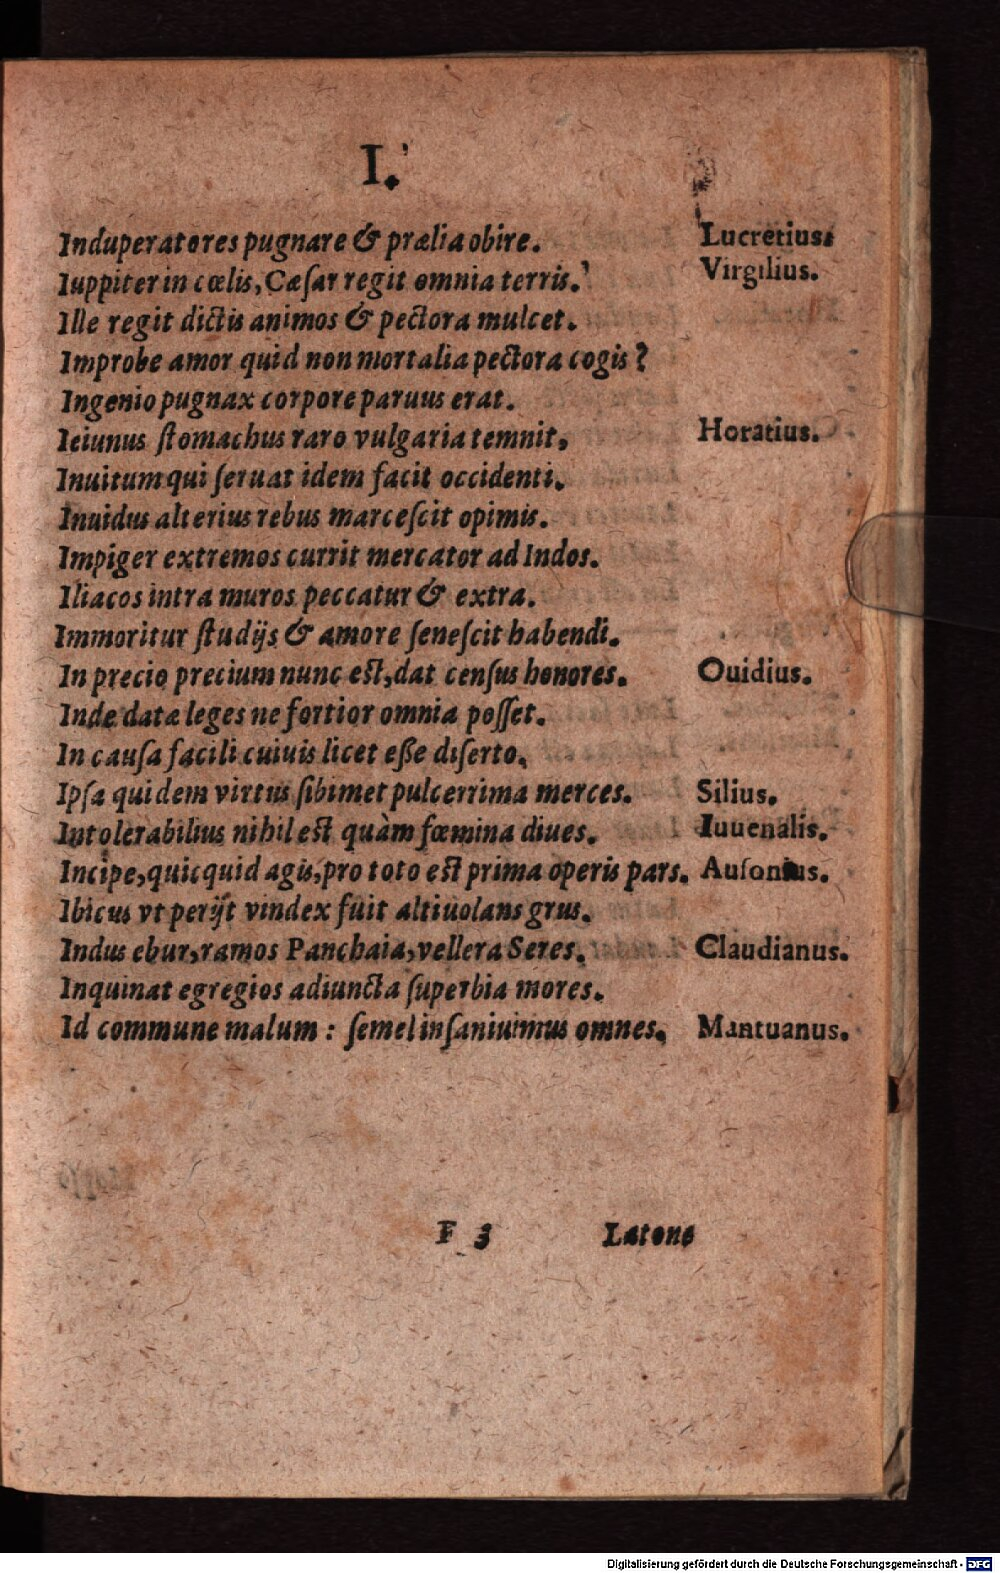 I.
Induperatores pugnare & prælia obire. Lucretius.
Iuppiter in cœlis, Cæſar regit omnia terris. Virgilius.
Ille regit dictis animos & pectora mulcet.
Improbe amor quid non mortalia pectora cogis?
Ingenio pugnax corpore paruus erat.
Ieiunus ſtomachus raro vulgaria temnit, Horatius.
Inuitum qui ſeruat idem facit occidenti.
Inuidus alterius rebus marceſcit opimis.
Impiger extremos currit mercator ad Indos.
Iliacos intra muros peccatur & extra.
Immoritur ſtudijs & amore ſeneſcit habendi.
In precio precium nunc eſt, dat cenſus honores. Ouidius.
Inde datæ leges ne fortior omnia poſſet.
In cauſa facili cuiuis licet eße diſerto.
Ipſa quidem virtus ſibimet pulcerrima merces. Silius.
Intolerabilius nihil eſt quàm fœmina diues. Iuuenalis.
Incipe, quicquid agis, pro toto eſt prima operis pars. Auſonius.
Ibicus vt perijt vindex fuit altiuolans grus.
Indus ebur, ramos Panchaia, vellera Seres. Claudianus.
Inquinat egregios adiuncta ſuperbia mores.
Id commune malum: ſemel inſaniuimus omnes. Mantuanus.
F 3 Latone
Digitalisierung gefördert durch die Deutsche Forschungsgemeinschaft - DFG